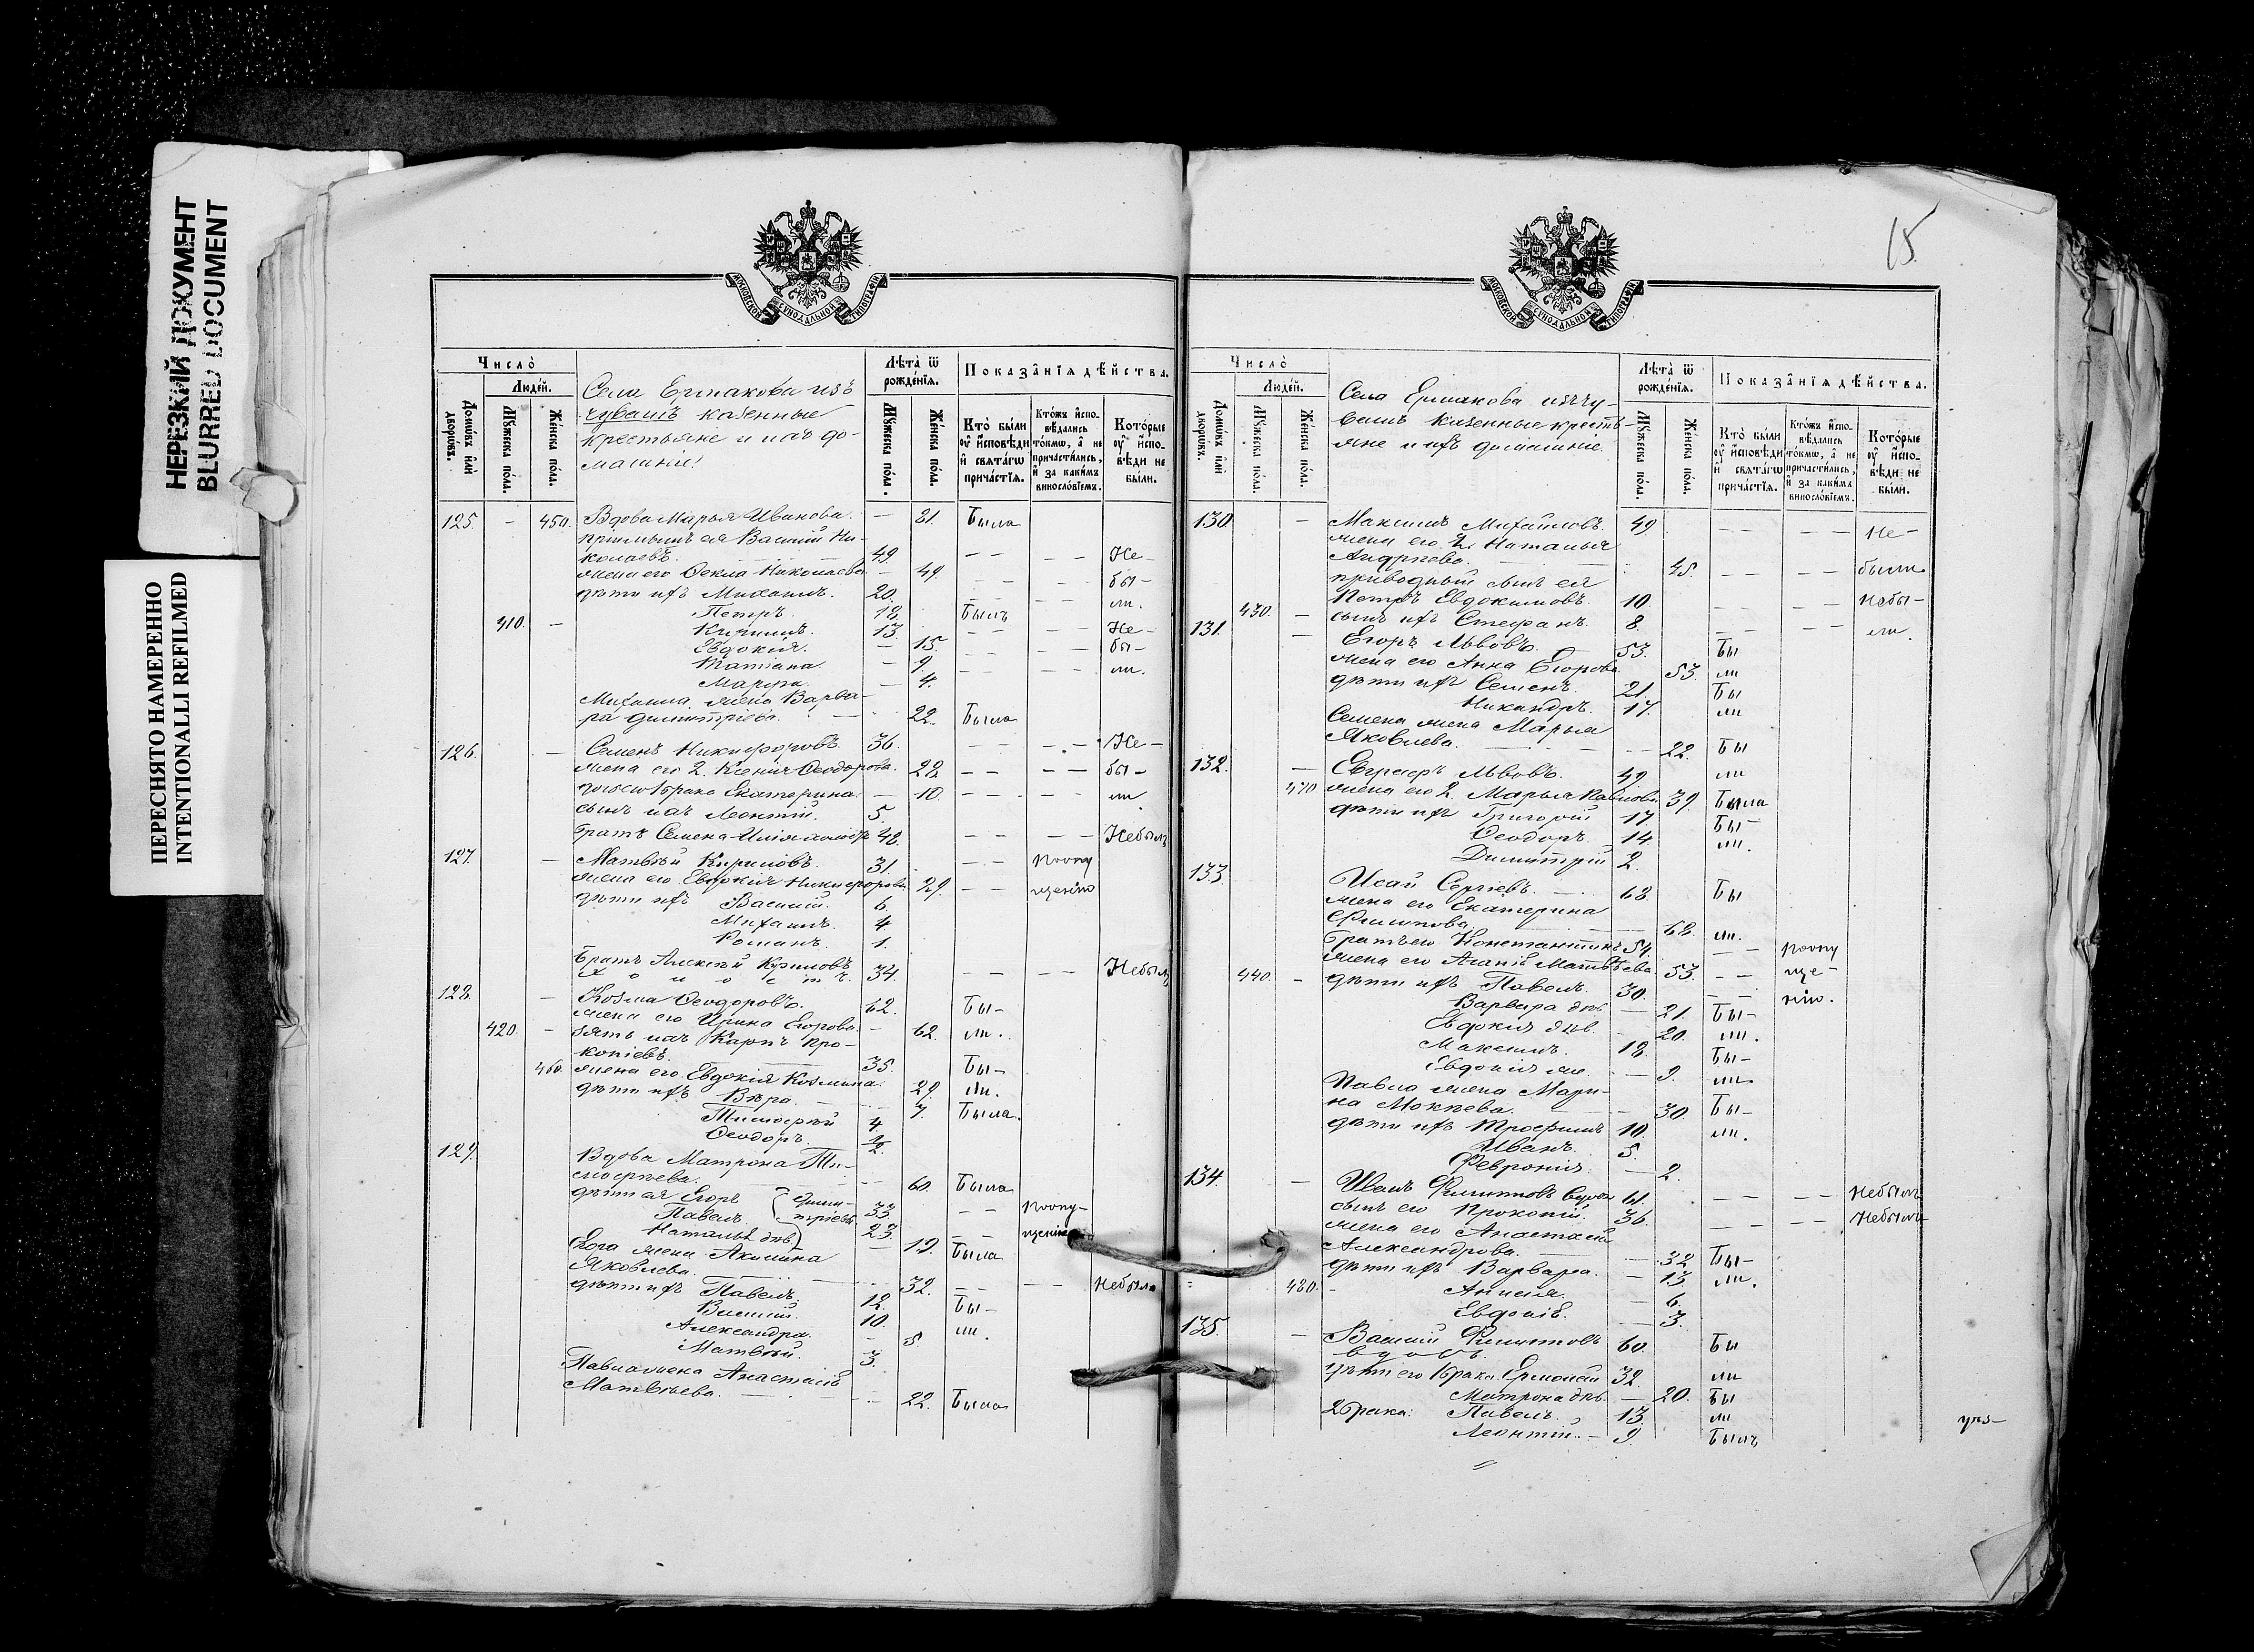 НЕРЕЗКИЙ ДОКУМЕНТ
BLURRED DOCUMENT
ПЕРЕСНЯТО НАМЕРЕННО
INTENTIONALLI REFILMED
МОСКОВСКОЙ СѴНОДАЛЬНОЙ ТИПОГРАФІИ
Число̀
Людей.
Домѡвъ или дворѡвъ.
Мꙋжеска пола.
Женска пола.
Села Ермакова изъ
чувашъ казенные
крестьяне и ихъ до-
машніе:
Лѣта ѿ рожденїѧ.
Мꙋжеска пола.
Женска пола.
Показанїѧ дѣйства.
Кто были оу исповѣди и свѧтагѡ причастїѧ.
Ктожъ исповѣдались токмѡ, а не причастились, и за какимъ винословїемъ.
Которые оу исповѣди не были.
125. - 450. Вдова Марья Иванова. — 81. Была
пріимышъ ея Василій Ни-
колаевъ. 49. — — — — Не-
жена его Ѳекла Николаева — 49. — — — — бы-
дѣти ихъ Михаилъ. 20. — — — — ли.
Петръ. 18. Былъ
410. — Кирилъ. 13. — — — — Не-
Евдокія. — 15. — — — — бы-
Татіана — 9. — — — — ли.
Марѳа. — 4.
Михаила жена Варва-
ра Димитріева. — 22. Была
126. — Семенъ Никифоровъ. 36. — — — — Не-
жена его 2. Ксенія Ѳеодорова. 28. — — — — бы-
дочь его 1 брака Екатерина. — 10. — — — — ли
сынъ ихъ Леонтій. 5.
Братъ Семена Илія холостъ 48. — — — — Небылъ
127. — Матвѣй Кириловъ. 31. — — По опу
жена его Евдокія Никифорова 29. — — щенію
дѣти ихъ Василій. 6
Михаилъ. 4
Романъ. 1.
Братъ Алексѣй Кириловъ
холостъ. 34. — — — — Небылъ
128. — Козма Ѳеодоровъ. 62. Бы-
жена его Ирина Егорова. — 62. ли.
420. — зять ихъ Карпъ Про-
копіевъ. 35. Бы-
460. жена его Евдокія Козмина 29. ли.
дѣти ихъ Вѣра. — 7. Была.
Тимоѳей 4.
Ѳеодоръ. ½.
129. Вдова Матрона Ти-
моѳеева. — 60. Была
дѣти ея Егоръ Дими- 33. — — По опу-
Павелъ тріевы 23. — — щенію
Наталья дѣв. — 19. Была
Егора жена Акилина
Яковлева. — 32. — — — Небыла
дѣти ихъ Павелъ. 12. Бы-
Василій. 10. ли.
Александра. — 5.
Матвѣй. 3.
Павла жена Анастасія
Матвѣева. — 22. Была
15.
МОСКОВСКОЙ СѴНОДАЛЬНОЙ ТИПОГРАФІИ
Число̀
Людей.
Домѡвъ или дворѡвъ.
Мꙋжеска пола.
Женска пола.
Села Ермакова изъ чу-
вашъ казенные кресть-
яне и ихъ домашніе.
Лѣта ѿ рожденїѧ.
Мꙋжеска пола.
Женска пола.
Показанїѧ дѣйства.
Кто были оу исповѣди и свѧтагѡ причастїѧ.
Ктожъ исповѣдались токмѡ, а не причастились, и за какимъ винословїемъ.
Которые оу исповѣди не были.
130. — Максимъ Михайловъ. 49. — — — — Не-
жена его 2. Наталья
Андреева. 45. — — — — были
приводный сынъ ея
Петръ Евдокимовъ. 10. — — — — Небы-
430. — сынъ ихъ Стефанъ. 8. — — — — ли.
131. — Егоръ Львовъ. 53. Бы
жена его Анна Егорова. 53. ли
дѣти ихъ Семенъ. 21. Бы
Никандръ. 17. ли
Семена жена Марья
Яковлева. — 22. Бы
132. — Евграфъ Львовъ. 49. ли
470 жена его 2. Марья Павлова 39. Была
дѣти ихъ Григорій 17. Бы-
Ѳеодоръ. 14. ли.
Димитрій 2.
133. Исай Сергіевъ. 68. Бы
жена его Екатерина
Филипова. 68. ли.
Братъ его Константинъ 54. — — По опу
жена его Агапія Матвѣева. 53. — — ще-
440. — дѣти ихъ Павелъ. 30. — — нію.
Варвара дѣв — 21. Бы-
Евдокія дѣв. — 20. ли.
Максимъ. 18. Бы-
Евдокія мл. — 9. ли.
Павла жена Мари-
на Мокеева. — 30. Бы-
дѣти ихъ Трофимъ 10. ли.
Иванъ. 5.
Февронія. — 2.
134. — Иванъ Филиповъ вдовъ 61. — — — — Небылъ
сынъ его Прокопій. 36. — — — — Небылъ
жена его Анастасія
Александрова. — 32 Бы-
дѣти ихъ Варвара. — 13 ли.
480. — Анисія. — 6.
Евдокія. — 3.
135. — Василій Филиповъ
вдовъ. 60. Бы
дѣти его 1 брака: Ермолай 32. ли
Матрона дѣв. — 20. Бы
2 брака: Павелъ. 13. ли
Леонтій. — 9. Былъ